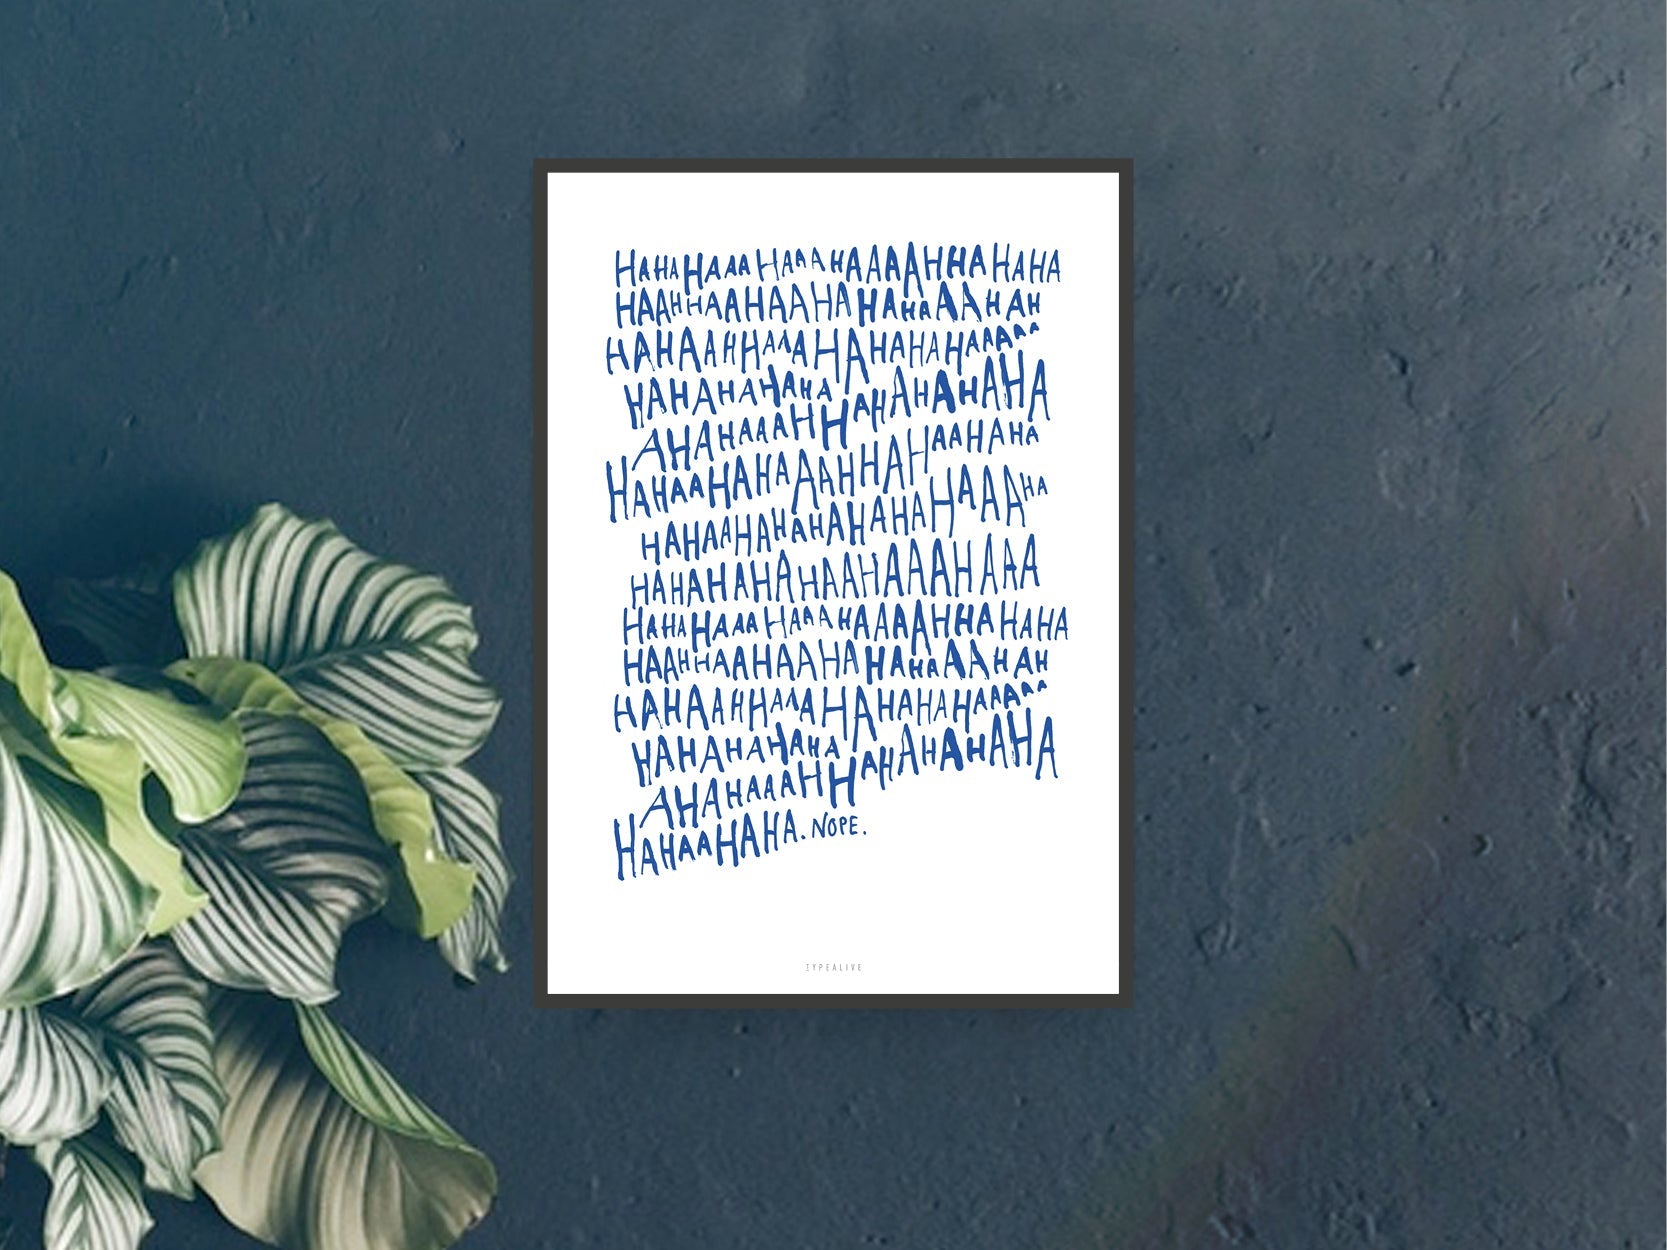 HAHAHAAAHAAAHAAAAHHAHAHA
HAAHHAAHAAHAHAHAAAHAH
HAHAAHHAAAHAHAHAHAAAAA
HAHAHAHAHAHA
AHAHAAAHHAHAHAHAHA
HAHAAHAHAAAHHAHAAHAHA
HAHAAHAHAHAHAHAHAAAHA
HAHAHAHAHAAHAAAHAAA
HAHAHAAAHAAAHAAAAHHAHAHA
HAAHHAAHAAHAHAHAAAHAH
HAHAAHHAAAHAHAHAHAAAAA
HAHAHAHAHAHA
AHAHAAAHHAHAHAHAHA
HAHAAHAHA. NOPE.
TYPEALIVE